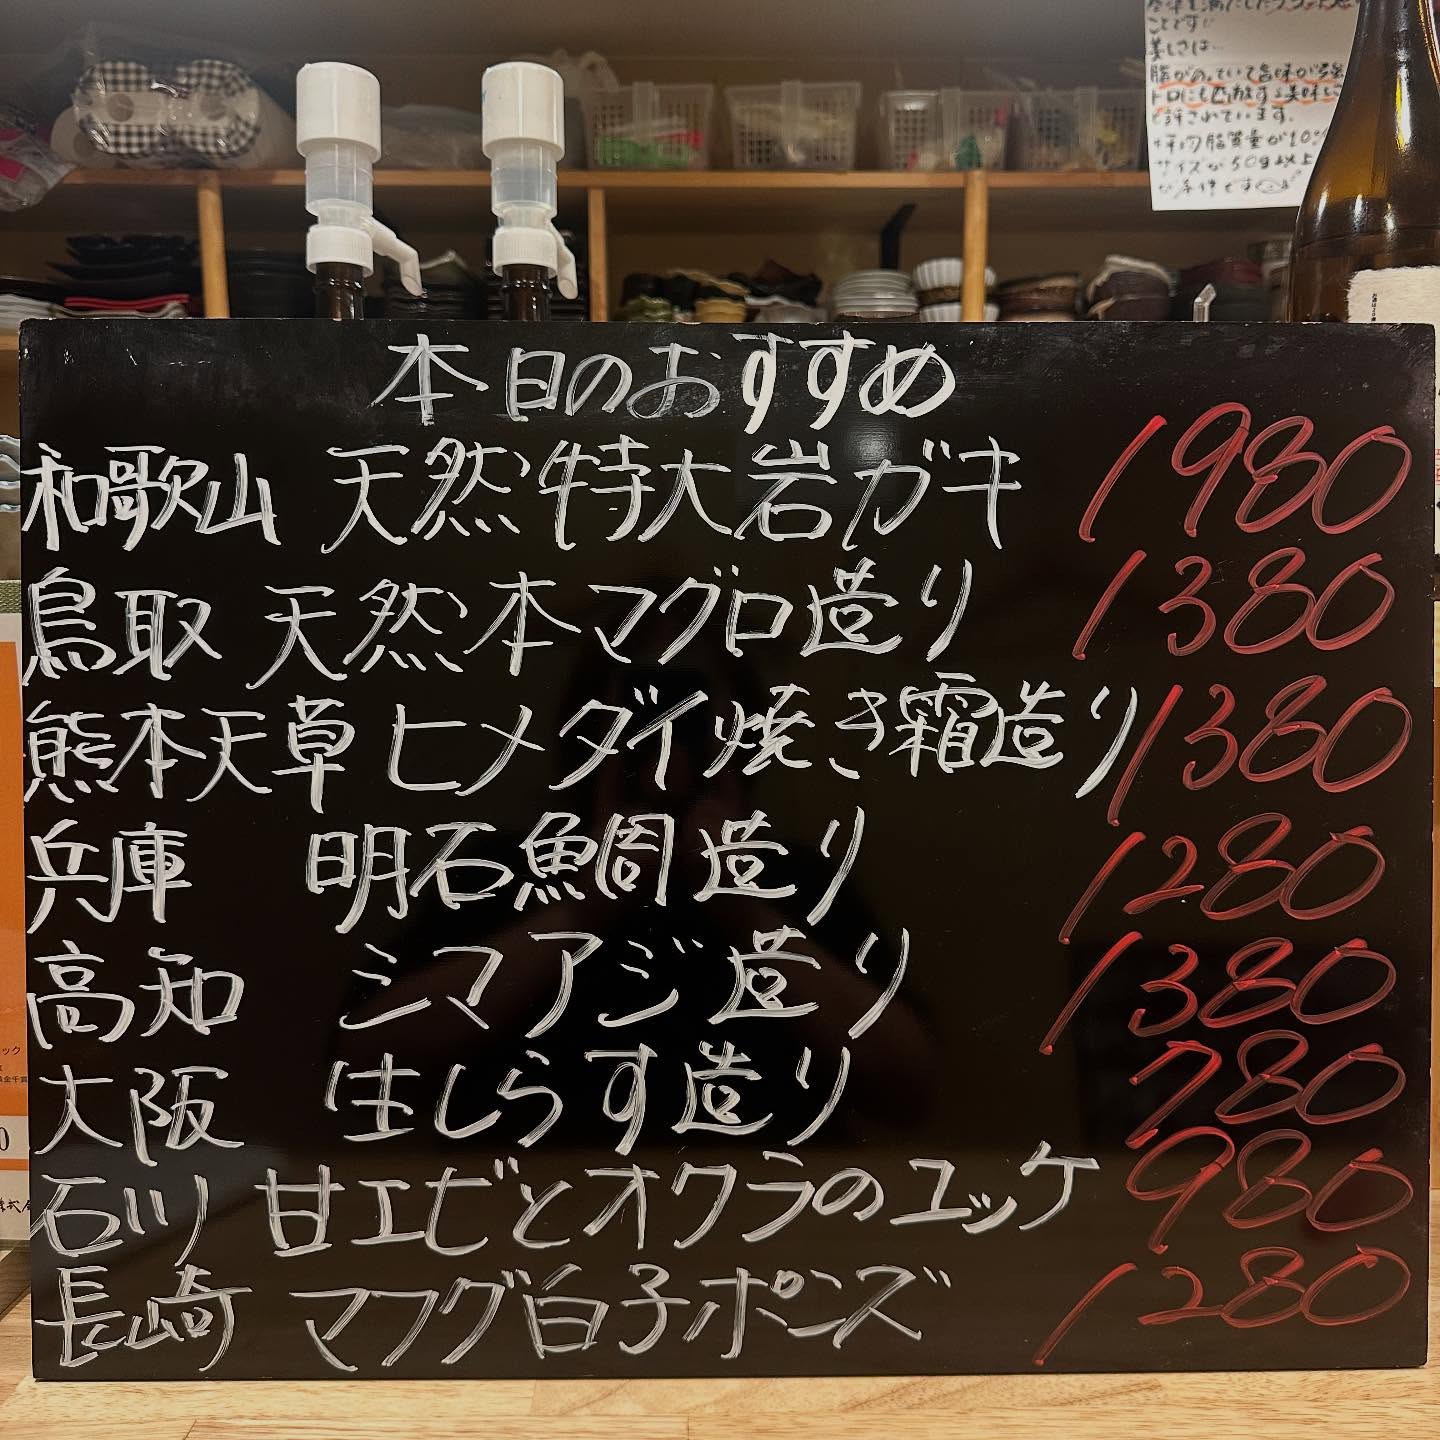 基準を満たした
ことです!!
美しさは…
脂がのっていて旨味が強
トロにも匹敵する美味しさ
と評されています。
平均脂質量が10%
サイズが50g以上
が条件です
本日のおすすめ
和歌山 天然特大岩ガキ 1980
鳥取 天然本マグロ造り 1380
熊本天草 ヒメダイ焼き霜造り 1380
兵庫 明石鯛造り 1280
高知 シマアジ造り 1380
大阪 生しらす造り 780
石川 甘エビとオクラのユッケ 980
長崎 マフグ白子ポンズ 1280